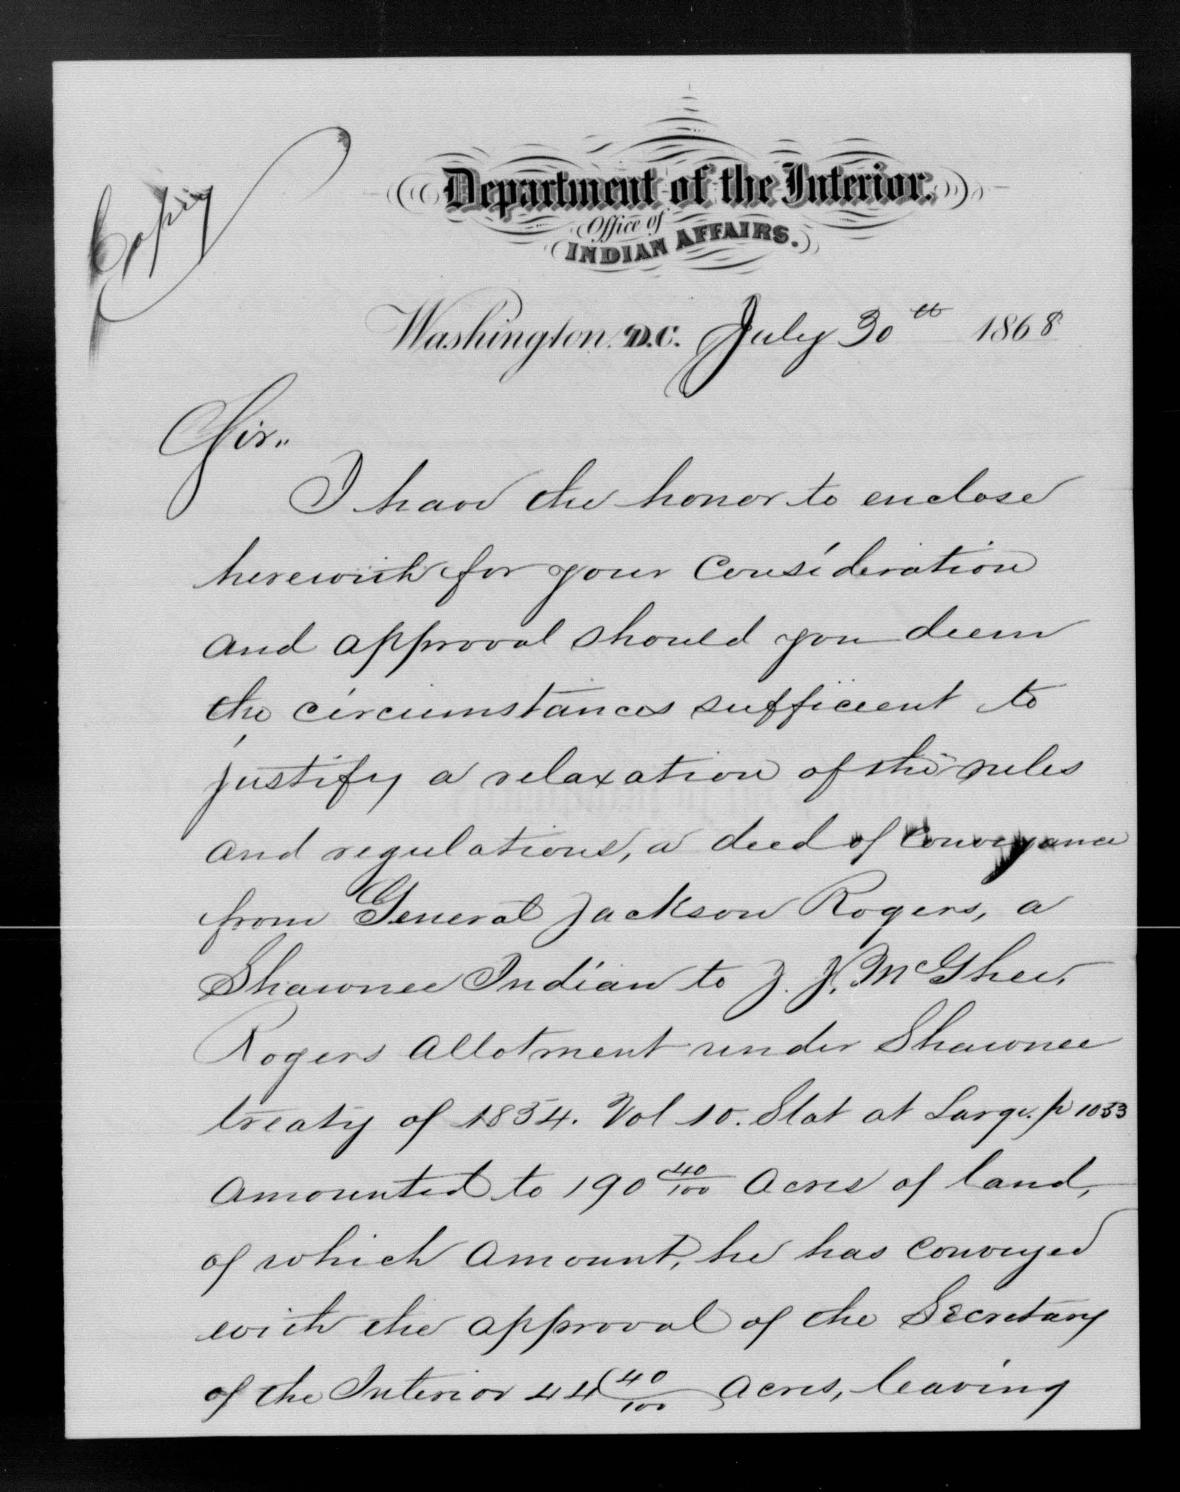 Copy
Department of the Interior.
Office of
INDIAN AFFAIRS.
Washington, D.C. July 30th 1868
Sir..
I have the honor to enclose
herewith for your consideration
and approval should you deem
the circumstances sufficient to
justify a relaxation of the rules
and regulations, a deed of conveyance
from General Jackson Rogers, a
Shawnee Indian to J. J. McGhee.
Rogers allotment under Shawnee
treaty of 1854. Vol 10. Stat at Large. p 1053
amounted to 190 40/100 acres of land,
of which amount, he has conveyed
with the approval of the Secretary
of the Interior 44 40/100 acres, leaving